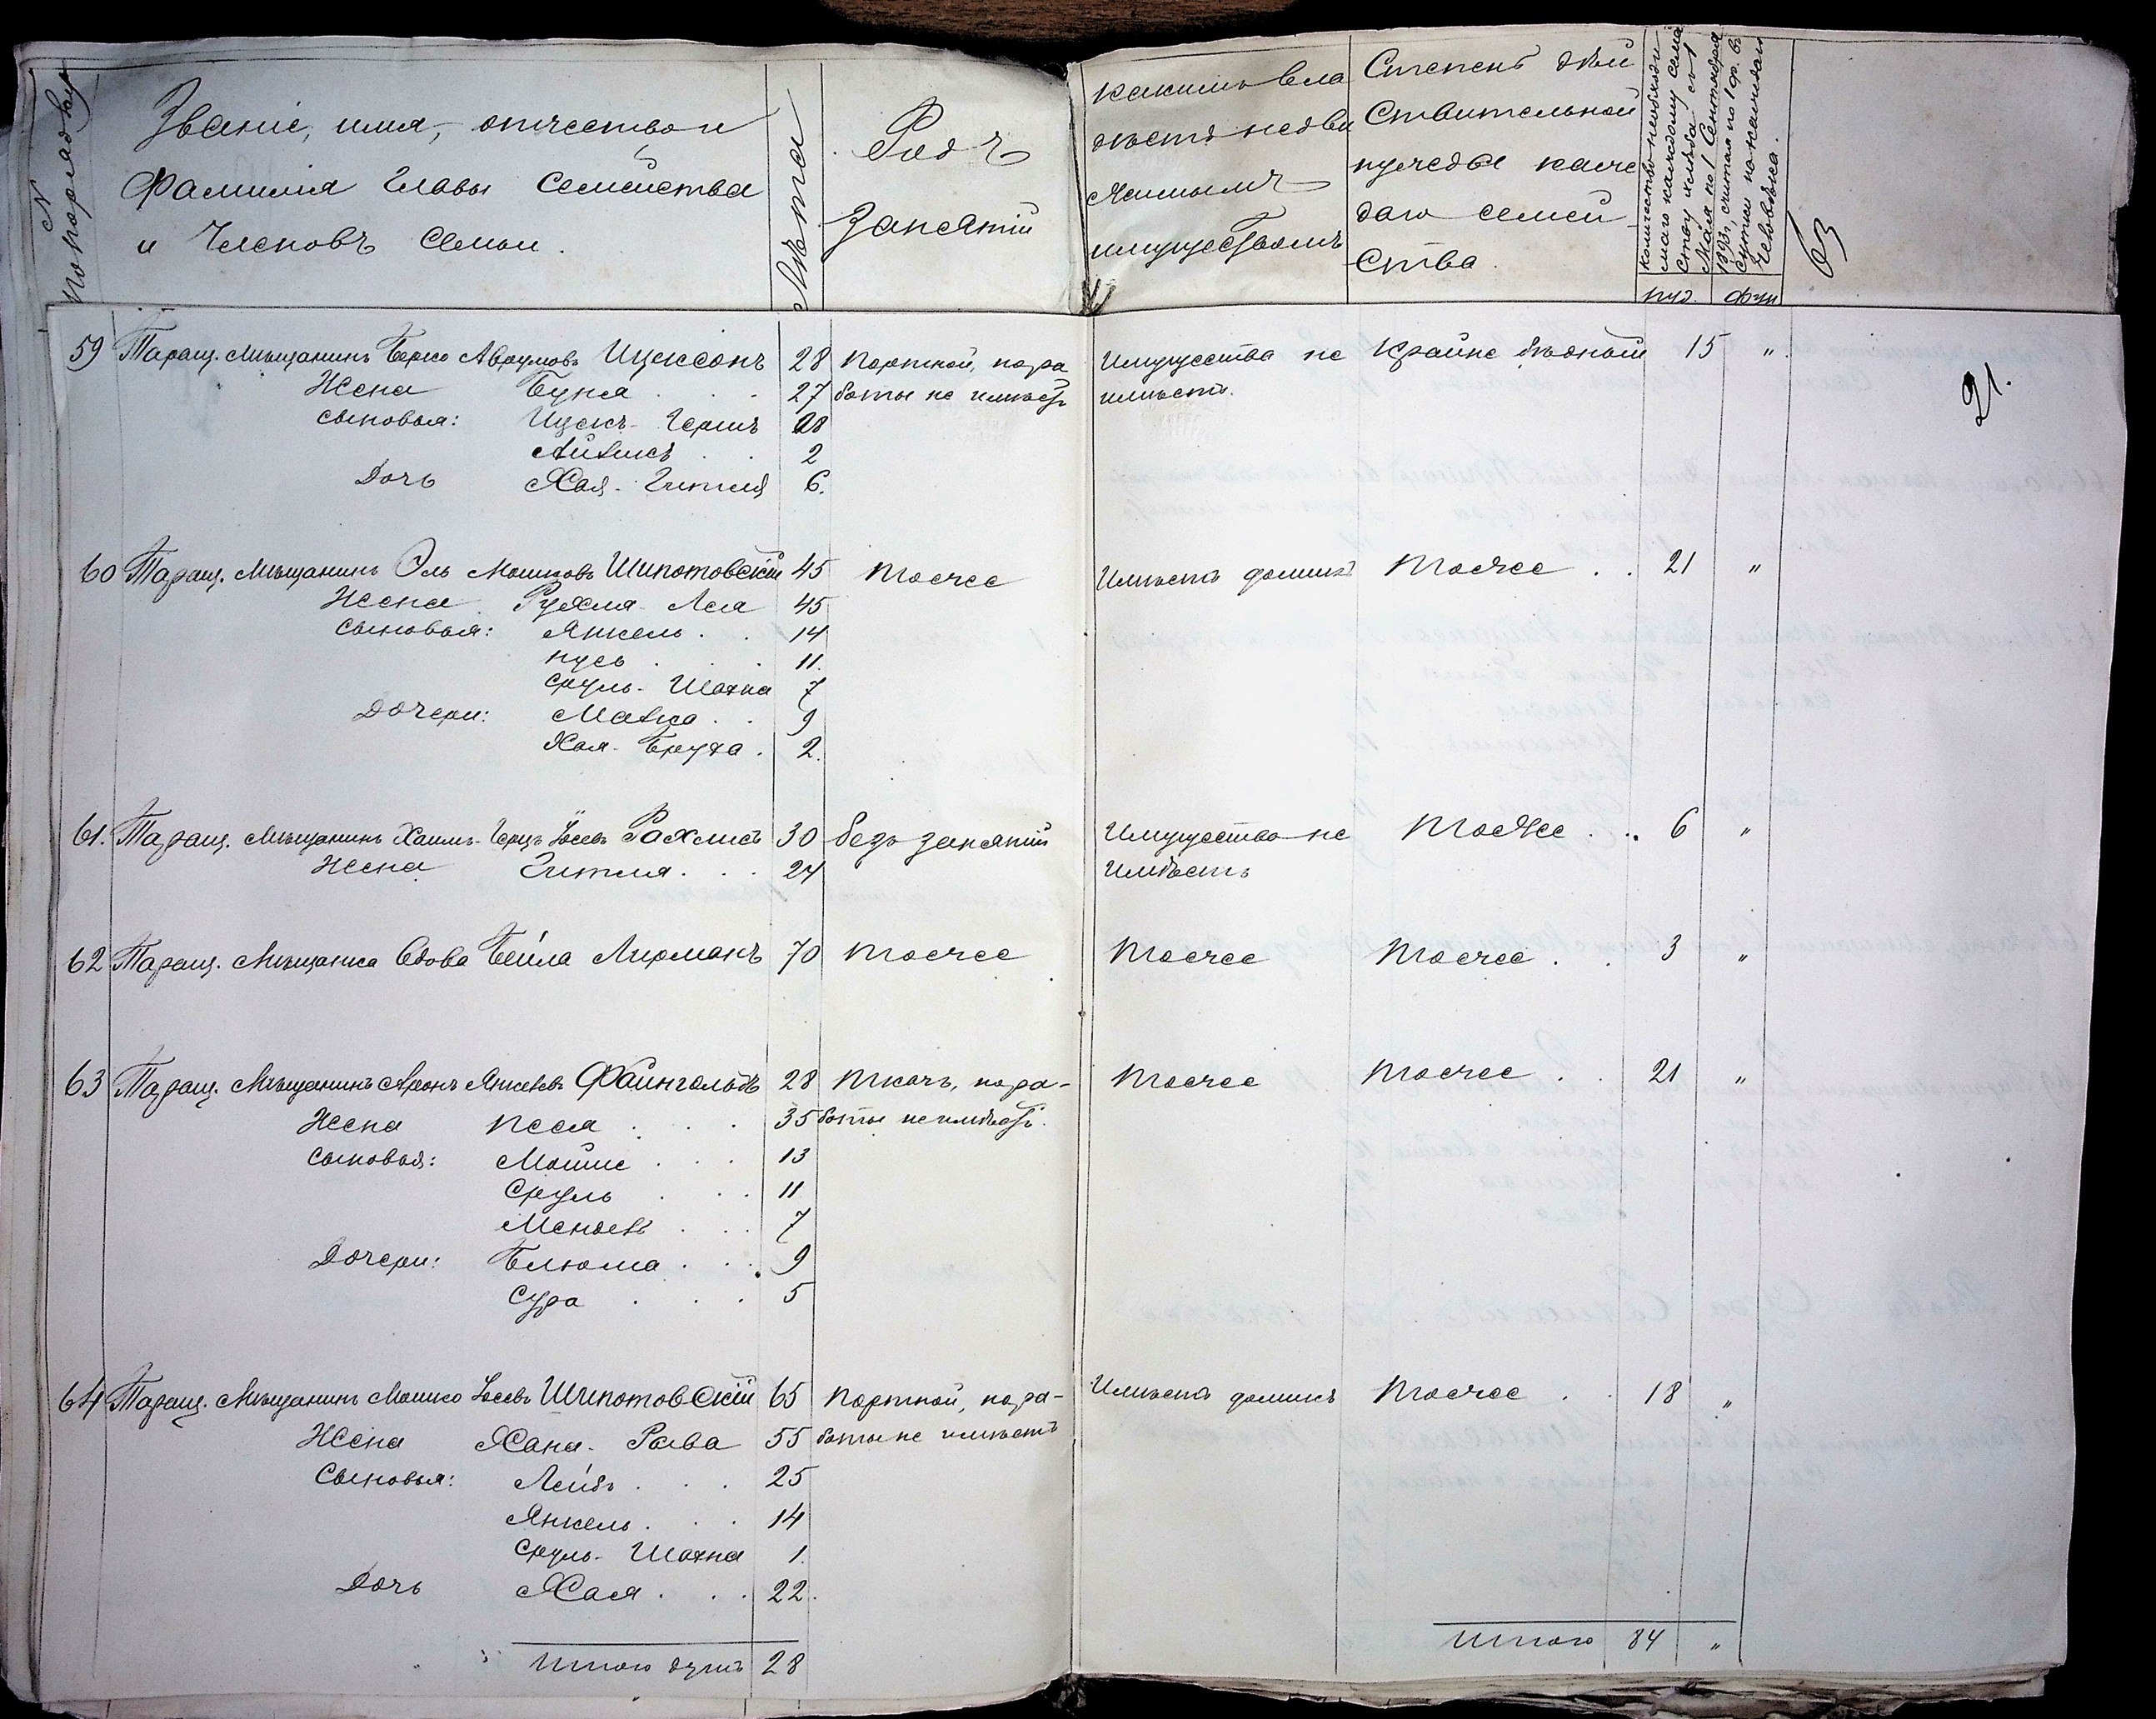 N
по порядку
Званіе, имя, отчество и
Фамилія Главы Семейства
и Членовъ Семьи.
Лѣта
Родъ
Занятій
какимъ вла
дѣетъ недви
жимымъ
имуществомъ
Степень дѣй
ствительной
нужды каж
даго семей
ства.
Количество необходи
маго каждому семей
ству хлѣба съ 1
Мая по 1 Сентября
1893 г, считая по 1 ф. въ
сутки на каждаго
человѣка.
пуд. фун
63
21.
59 Таращ. Мѣщанинъ Берко Аврумовъ Ицксонъ 28 Портной, рабо Имущества не Крайне бѣдной 15 "
Жена Буня 27 боты не имѣетъ имѣетъ.
Сыновья: Ицекъ-Гершъ
2
Дочь Хая-Гитля 6.
60 Таращ. Мѣщанинъ Эль Мошковъ Шипотовскій 45 тоже Имѣетъ домикъ тоже 21 "
Жена Рухля-Лея 45
Сыновья: Янкель 14
Нусь 11.
Сруль-Шахна 7
Дочери: Малка 9
Хая-Бруха 2.
61. Таращ. Мѣщанинъ Хаимъ-Герцъ Іосевъ Рахлисъ 30 безъ занятій Имущества не тоже 6 "
Жена Гитля 24 имѣетъ
62 Таращ. Мѣщанка Вдова Бейла Лирманъ 70 тоже тоже тоже 3 "
63 Таращ. Мѣщанинъ Аронъ Янкелевъ Файнгольдъ 28 Ткачъ, рабо- тоже тоже 21 "
Жена Песя 35 боты не имѣетъ.
Сыновья: Мойше 13
Сруль 11
Мендель 7
Дочери: Блюма 9
Сура 5
64 Таращ. Мѣщанинъ Мошко Іосевъ Шипотовскій 65 Портной, рабо- Имѣетъ домикъ тоже 18 "
Жена Хана-Рыва 55 боты не имѣетъ
Сыновья: Лейбъ 25
Янкель 14
Сруль-Шахна 1.
Дочь Хая 22.
Итого душъ 28
Итого 84 "